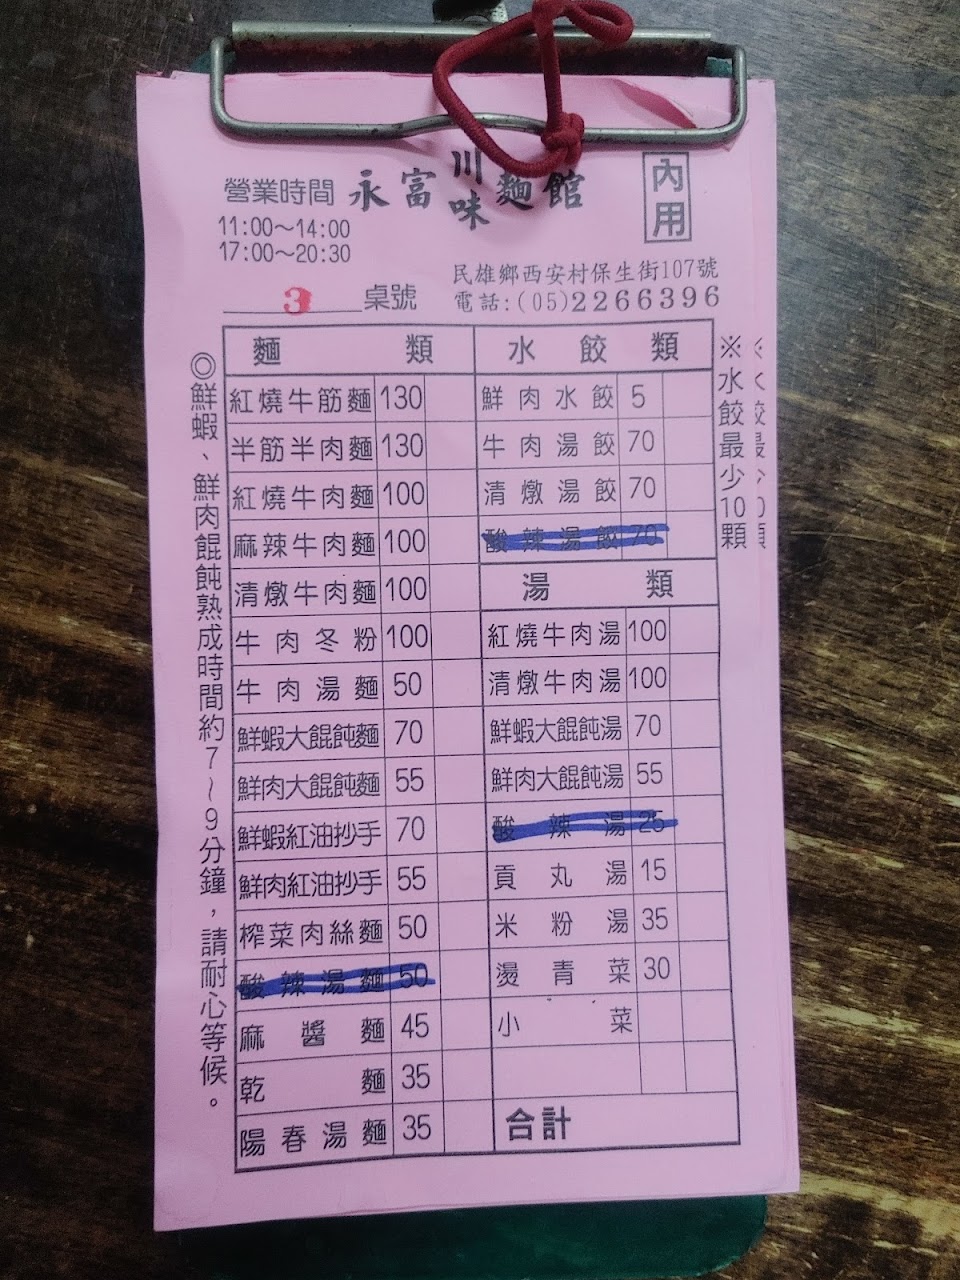 永富川味麵館
內用
營業時間
11:00～14:00
17:00～20:30
民雄鄉西安村保生街107號
電話:(05)2266396
3 桌號
◎鮮蝦、鮮肉餛飩熟成時間約7~9分鐘，請耐心等候。
麵類
紅燒牛筋麵 130
半筋半肉麵 130
紅燒牛肉麵 100
麻辣牛肉麵 100
清燉牛肉麵 100
牛肉冬粉 100
牛肉湯麵 50
鮮蝦大餛飩麵 70
鮮肉大餛飩麵 55
鮮蝦紅油抄手 70
鮮肉紅油抄手 55
榨菜肉絲麵 50
酸辣湯麵 50
麻醬麵 45
乾麵 35
陽春湯麵 35
水餃類
鮮肉水餃 5
牛肉湯餃 70
清燉湯餃 70
酸辣湯餃 70
湯類
紅燒牛肉湯 100
清燉牛肉湯 100
鮮蝦大餛飩湯 70
鮮肉大餛飩湯 55
酸辣湯 25
貢丸湯 15
米粉湯 35
燙青菜 30
小菜
合計
※水餃最少10顆